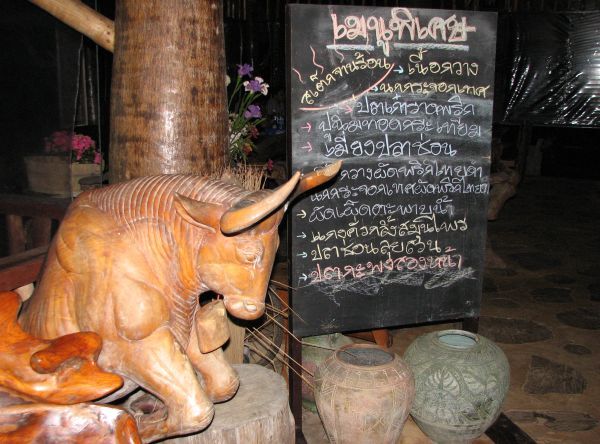 เมนูพิเศษ
สเต็กจานร้อน → เนื้อกวาง
→ นกกระจอกเทศ
→ ปลาเต๋าราดพริก
→ ปลาทอดกระเทียม
→ เมี่ยงปลาช่อน
กวางผัดพริกไทยดำ
นกกระจอกเทศผัดพริกไทยดำ
ผัดเผ็ดตะพาบน้ำ
แกงคั่วกลิ้งสมุนไพร
ปลาช่อนลุยสวน
ปลากะพงสองหน้า